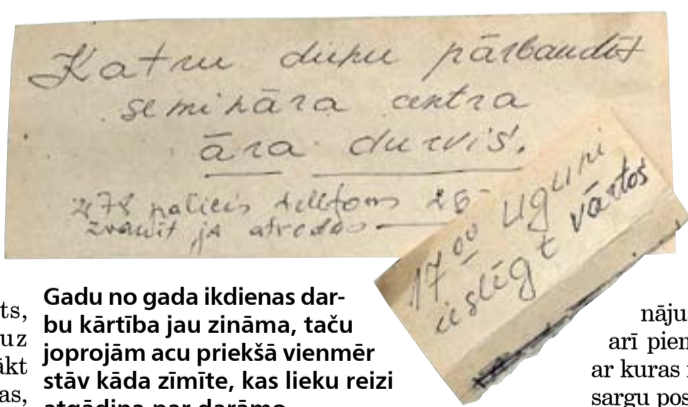 Katru dienu pārbaudīt
semināra centra
āra durvis.
278 palicis telefons 28-
zvanīt ja atrodas
17 00 uguni
ieslēgt vārtos
Gadu no gada ikdienas dar-
bu kārtība jau zināma, taču
joprojām acu priekšā vienmēr
stāv kāda zīmīte, kas lieku reizi
atgādina par darāmo
ts,
uz
as,
arī
ar kuras
sargu